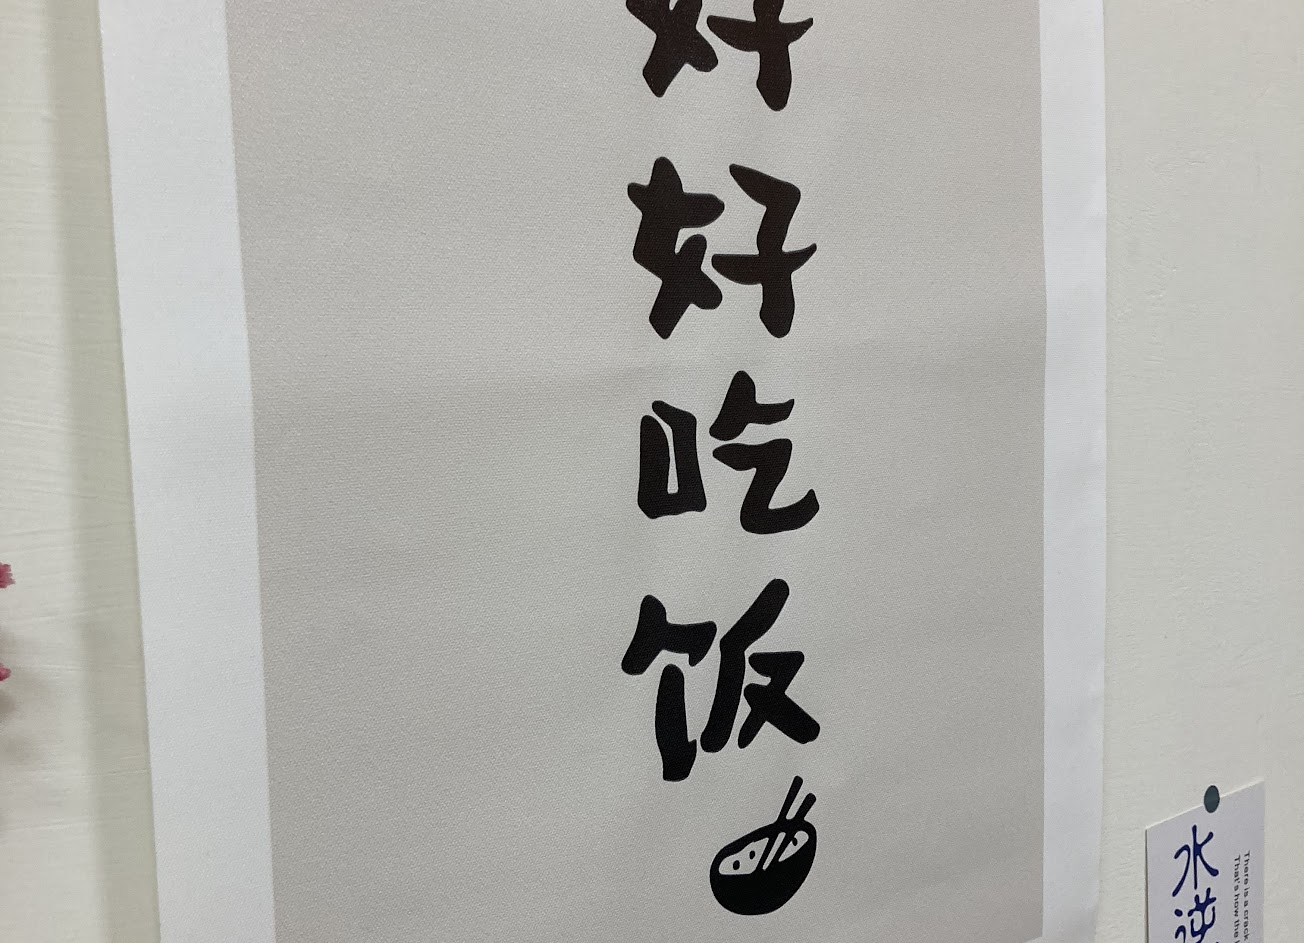 好好吃饭
水逆
There is a crack
That's how the